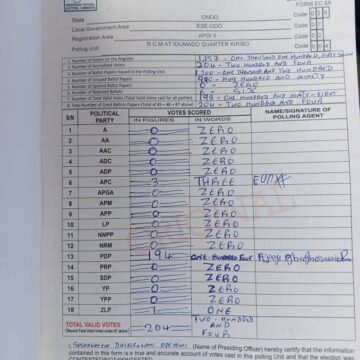 FORM EC 8A
State ONDO Code
Local Government Area ESE-ODO Code
Registration Area APOI II Code
Polling Unit R.C.M AT IDUMADO QUARTER KIRIBO Code
1. Number of Voters on the Register 1,157 - ONE THOUSAND ONE HUNDRED, FIFTY SEVEN
2. Number of Accredited Voters 204 - TWO HUNDRED AND FOUR
3. Number of Ballot Papers Issued to the Polling Unit
4. Number of Unused Ballot Papers NINE HUNDRED AND NINETY
5. Number of Spoiled Ballot Papers 0 - ZERO
6. Number of Rejected Ballots SIX
7. Number of Total Valid Votes (Total Valid Votes cast for all parties) ONE HUNDRED AND NINETY-EIGHT
8. Total Number of Used Ballot Papers (Total of #5 + #6 + #7 above) 204 - TWO HUNDRED AND FOUR
S/N POLITICAL PARTY VOTES SCORED NAME/SIGNATURE OF POLLING AGENT
IN FIGURES IN WORDS
1 A 0 ZERO
2 AA 0 ZERO
3 AAC 0 ZERO
4 ADC 0 ZERO
5 ADP 0 ZERO
6 APC 3 THREE
7 APGA 0 ZERO
8 APM 0 ZERO
9 APP 0 ZERO
10 LP 0 ZERO
11 NNPP 0 ZERO
12 NRM 0 ZERO
13 PDP 194 ONE-HUNDRED
14 PRP 0 ZERO
15 SDP 0 ZERO
16 YP 0 ZERO
17 YPP 0 ZERO
18 ZLP 1 ONE
TOTAL VALID VOTES 204 TWO-HUNDRED AND FOUR
(Record Total Valid Votes under #7 above)
I, (Name of Presiding Officer) hereby certify that the information
contained in this form is a true and accurate account of votes cast in this Polling Unit and that the election was